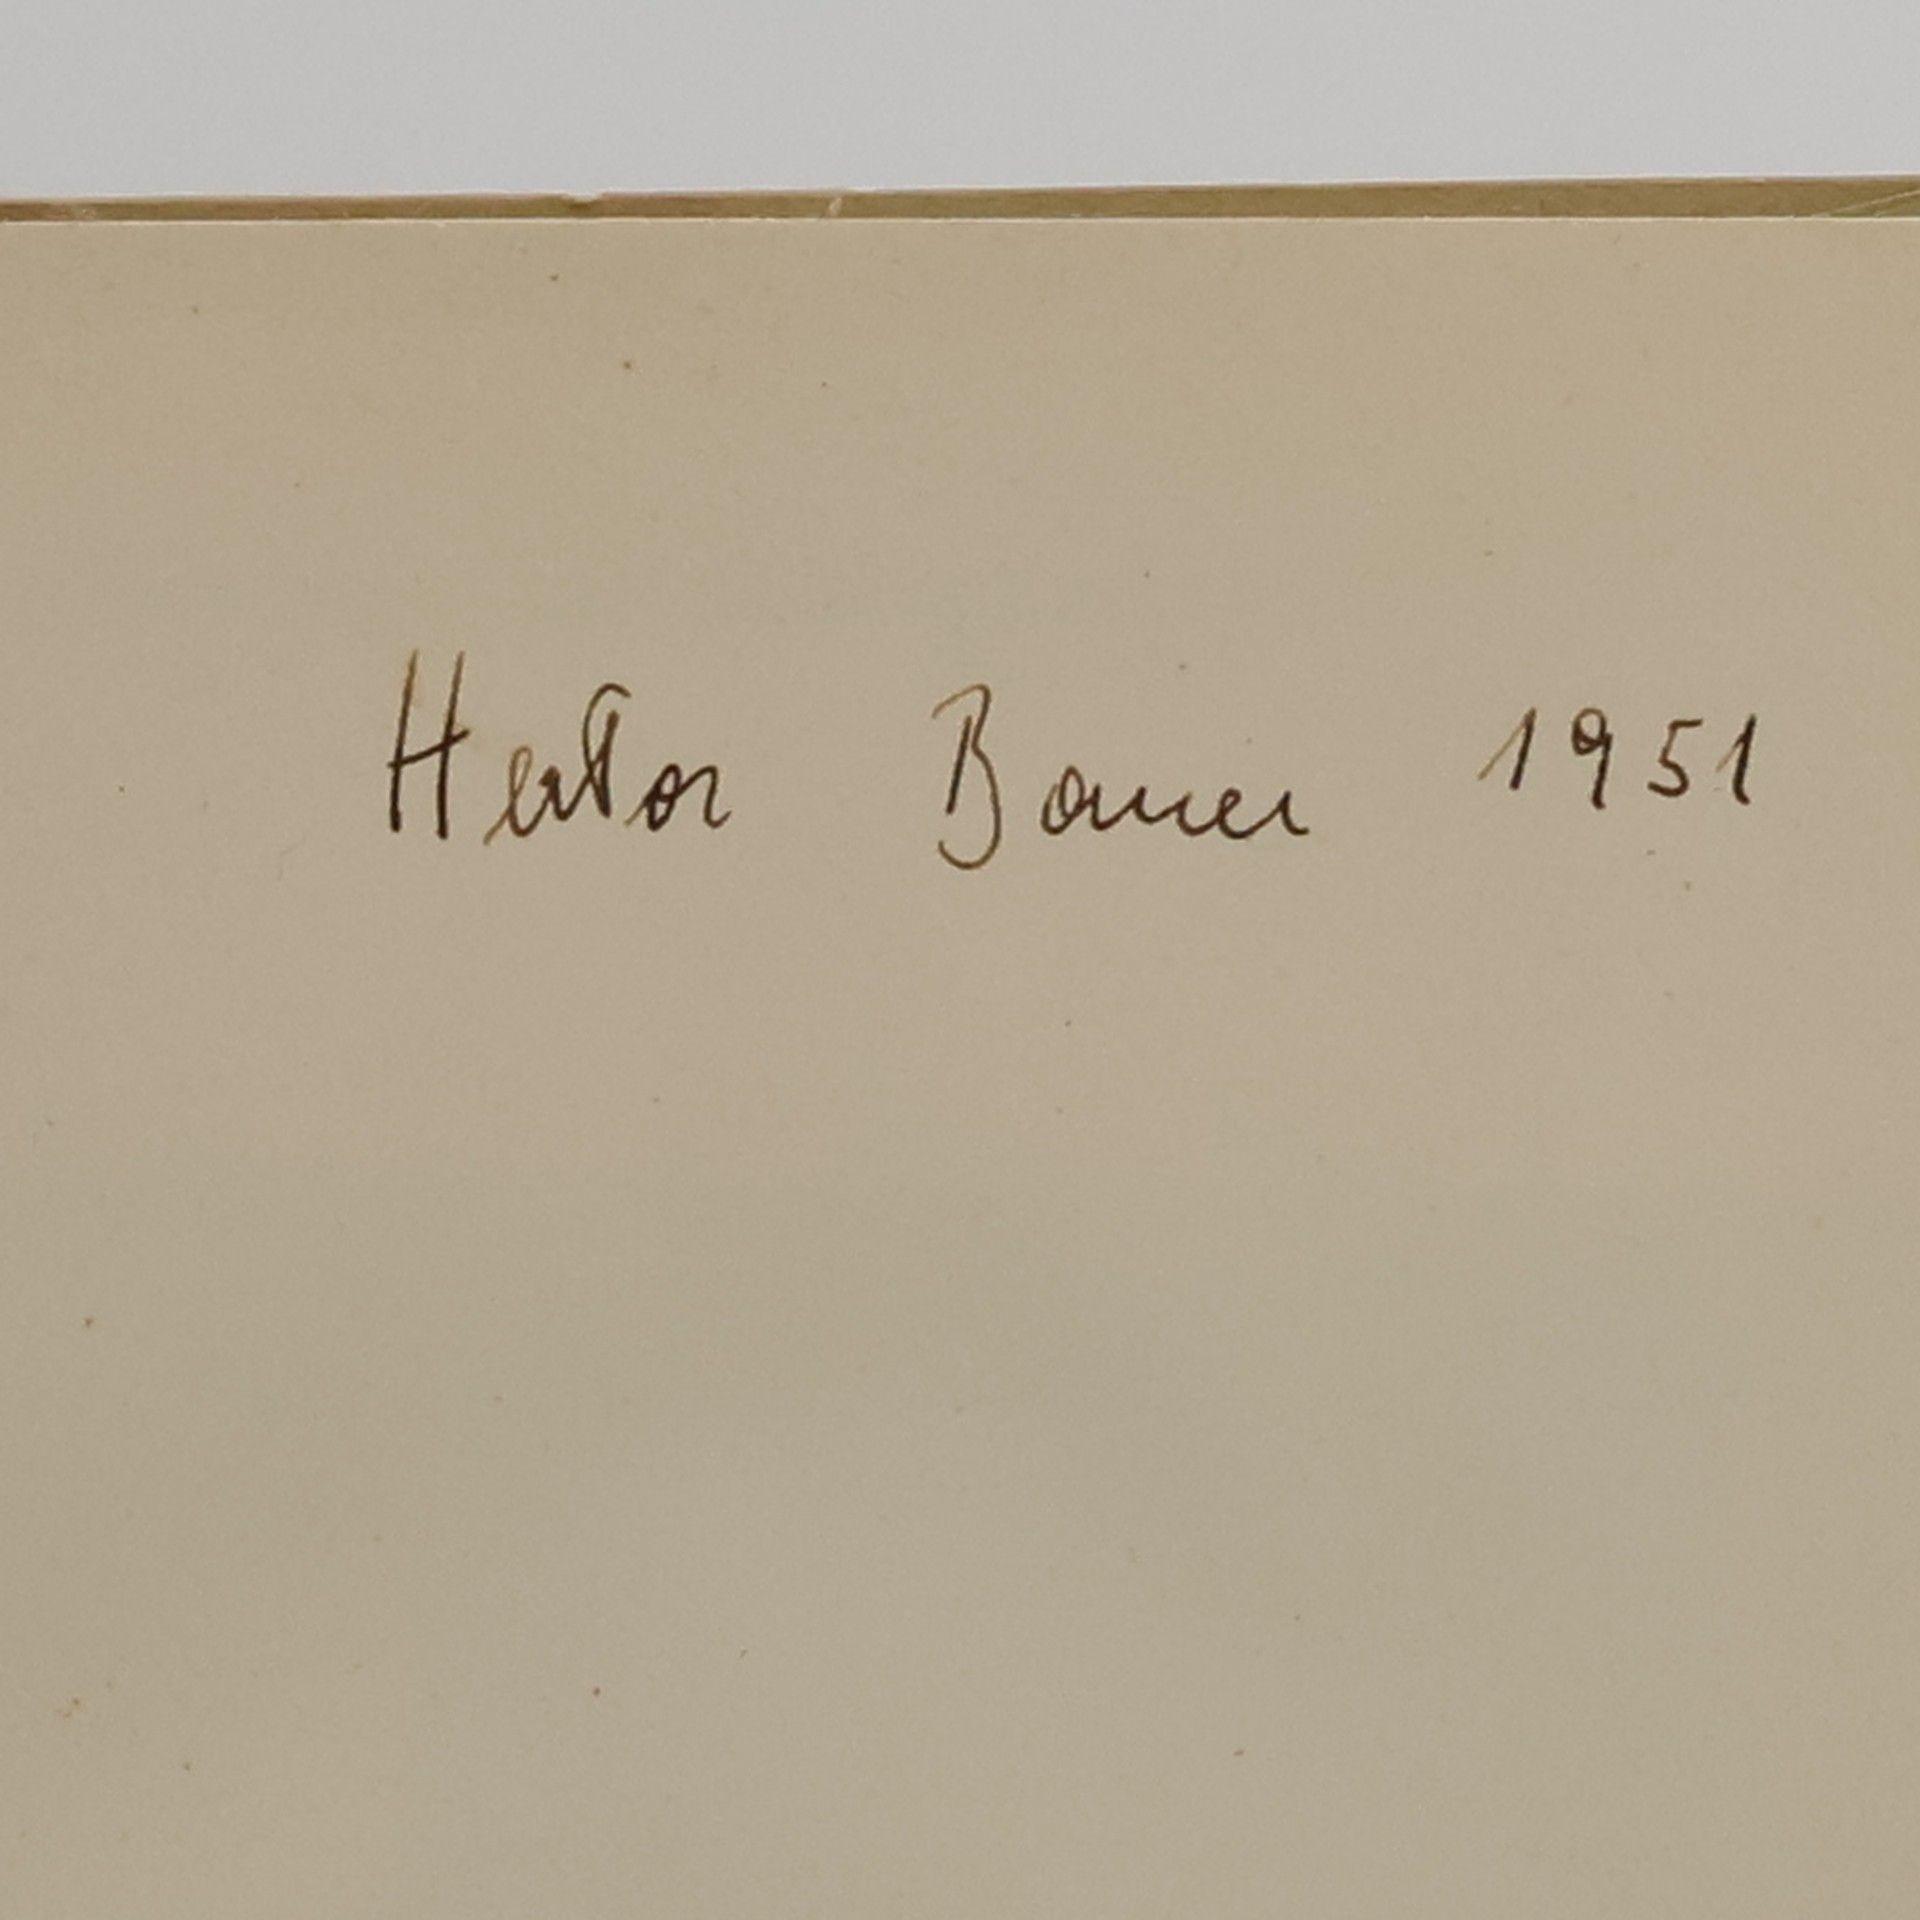 Hektor Bauer 1951